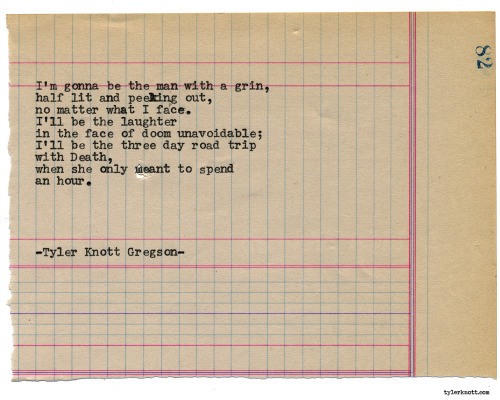 82
I'm gonna be the man with a grin,
half lit and peeking out,
no matter what I face.
I'll be the laughter
in the face of doom unavoidable;
I'll be the three day road trip
with Death,
when she only meant to spend
an hour.
-Tyler Knott Gregson-
tylerknott.com